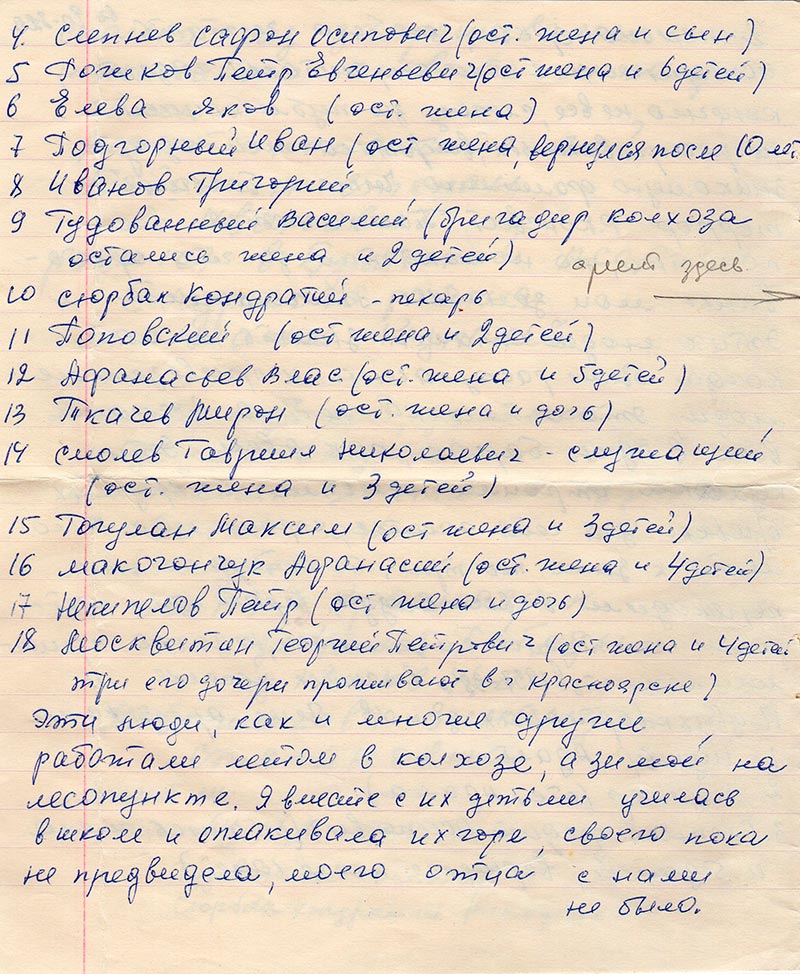 4. Слепнев Сафрон Осипович (ост. жена и сын)
5 Рочиков Петр Евгеньевич (ост жена и 6 детей)
6 Елева Яков (ост. жена)
7 Подгорный Иван (ост жена, вернулся после 10 лет
8 Иванов Григорий
9 Тудованный Василий (бригадир колхоза
остались жена и 2 детей)
арест здесь
10 Сюрбак Кондратий - пекарь
11 Поповский (ост жена и 2 детей)
12 Афанасьев Влас (ост. жена и 5 детей)
13 Ткачев Мирон (ост. жена и дочь)
14 Смолев Гавриил Николаевич - служащий
(ост. жена и 3 детей)
15 Тогулан Максим (ост жена и 3 детей)
16 Макогончук Афанасий (ост. жена и 4 детей)
17 Некипелов Петр (ост жена и дочь)
18 Москвитин Георгий Петрович (ост жена и 4 детей
три его дочери проживают в г Красноярске)
Эти люди, как и многие другие,
работали летом в колхозе, а зимой на
лесопункте. Я вместе с их детьми училась
в школе и оплакивала их горе, своего пока
не предвидела, моего отца с нами
не было.